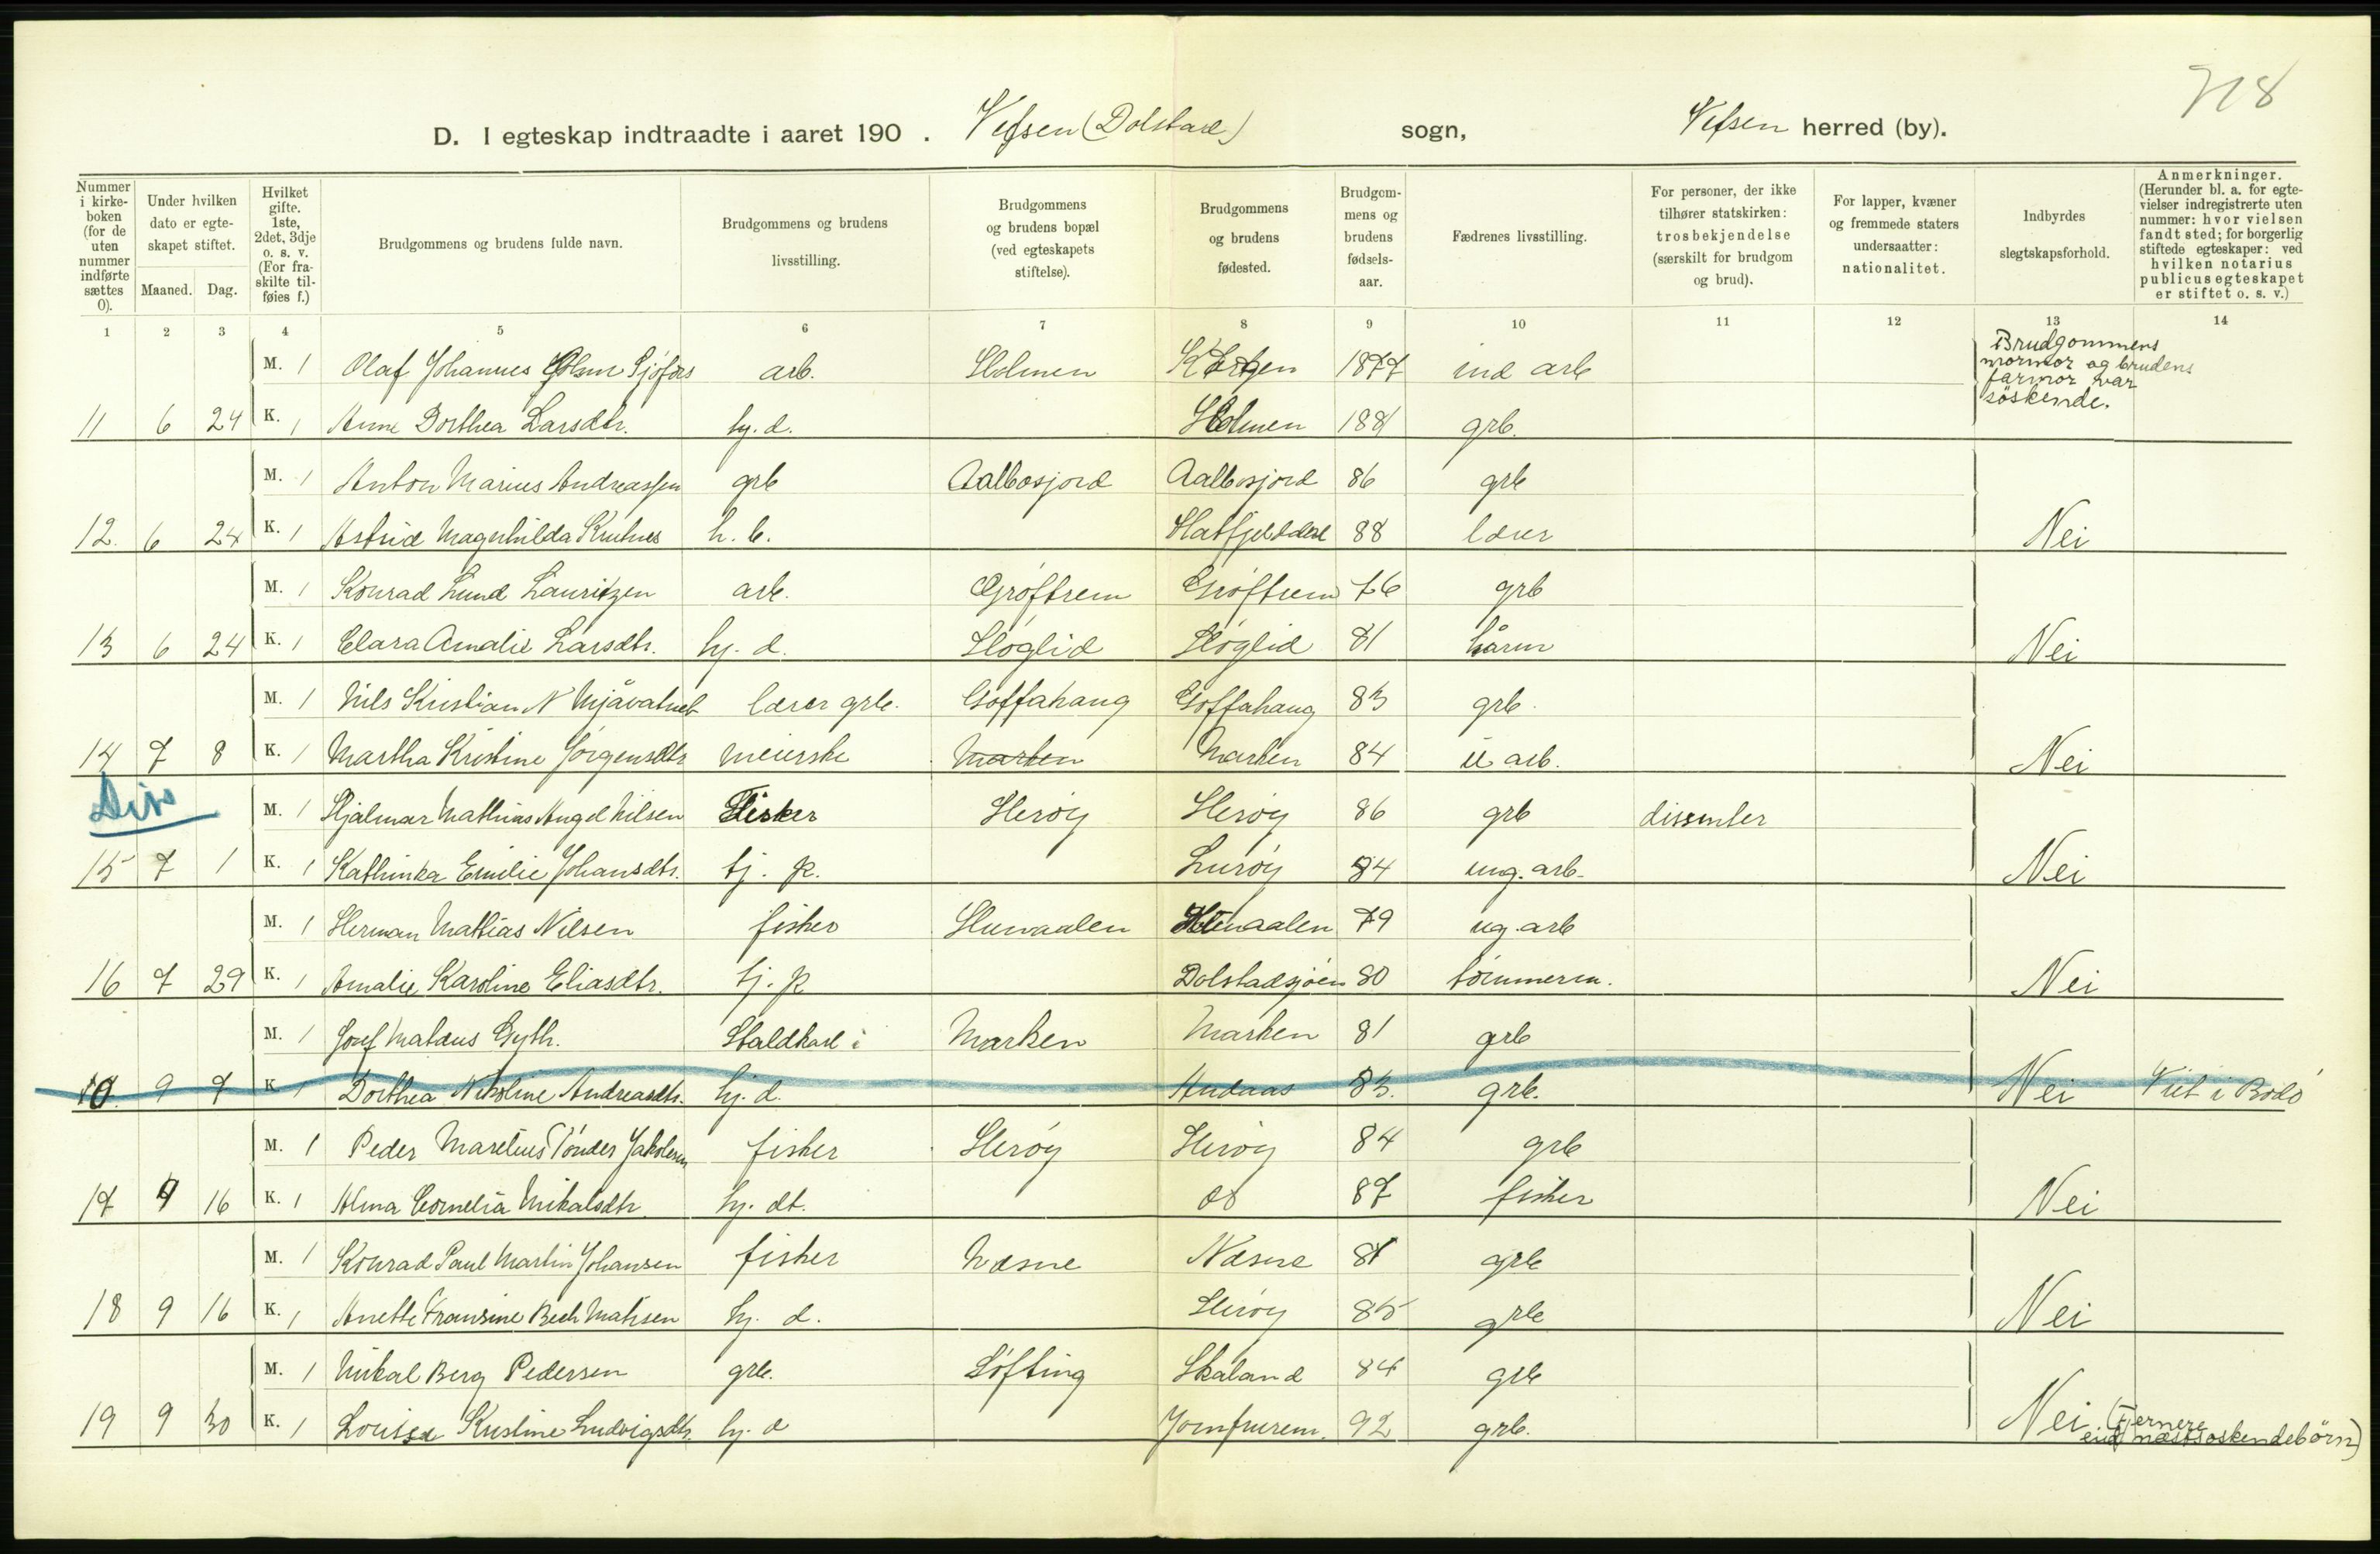 718
D. I egteskap indtraadte i aaret 190 . Vefsen (Dolstad) sogn, Vefsen herred (by).
Nummer i kirkeboken (for de uten nummer indførte sættes 0).
Under hvilken dato er egteskapet stiftet.
Maaned. Dag.
Hvilket gifte. 1ste, 2det, 3dje o. s. v. (For fraskilte tilføies f.)
Brudgommens og brudens fulde navn.
Brudgommens og brudens livsstilling.
Brudgommens og brudens bopæl (ved egteskapets stiftelse).
Brudgommens og brudens fødested.
Brudgommens og brudens fødselsaar.
Fædrenes livsstilling.
For personer, der ikke tilhører statskirken: trosbekjendelse (særskilt for brudgom og brud).
For lapper, kvæner og fremmede staters undersaatter: nationalitet.
Indbyrdes slegtskapsforhold.
Anmerkninger. (Herunder bl. a. for egtevielser indregistrerte uten nummer: hvor vielsen fandt sted; for borgerlig stiftede egteskaper: ved hvilken notarius publicus egteskapet er stiftet o. s. v.)
1 2 3 4 5 6 7 8 9 10 11 12 13 14
M. 1 Olaf Johannes arb. Holmen 1877 ind arb Brudgommens mormor og brudens farmor var söskende.
11 6 24 K. 1 Anne Dorthea Larsdtr. hj. d. Holmen 1881 grb.
M. 1 Anton Marius Andreassen grb Aalbosjord Aalbosjord 86 grb
12. 6 24 K. 1 Astrid Magnhilda h. b. Hatfjelddal 88 lærer Nei
M. 1 Konrad Lund Lauritzen arb. Gröftrem Gröftrem 76 grb
13 6 24 K. 1 Clara Amalie Larsdtr. hj. d. Höglid Höglid 81 Nei
M. 1 Nils Kristian N Mjåvatnet lærer grb. Goffahaug Goffahaug 83 grb.
14 7 8 K. 1 Martha Kristine Jörgensdtr meierske Marken Marken 84 arb. Nei
Diss
M. 1 Hjalmar Mathias Angel Nilsen Fisker Heröy Heröy 86 grb dissenter
15 7 1 K. 1 Kathinka Emilie Johansdtr. tj. p. Luröy 84 ung. arb. Nei
M. 1 Herman Mathias Nilsen fisker 79 ug. arb
16 7 29 K. 1 Amalie Karoline Eliasdtr. tj. p Dolstadsjöen 80 tömmerm. Nei
M. 1 Josef Mataus Gyth. Staldkarl i Marken Marken 81 grb
0. 9 7 K. 1 Dorthea Nikoline Andreasdtr. hj. d. Andaas 83. grb. Nei Viet i Bodö
M. 1 Peder Marelius Tönder Jakobsen fisker Heröy Heröy 84 grb
17 9 16 K. 1 Alma Cornelia Mikalsdtr. hj. dt. do 87 fisker Nei
M. 1 Konrad Paul Martin Johansen fisker Næsne Næsne 81 grb
18 9 16 K. 1 Anette Fransine Bech Matisen hj. d. Heröy 85 grb Nei
M. 1 Mikal Berg Pedersen grb. Söfting Skaland 84 grb
19 9 30 K. 1 Louise Kristine Ludvigsdtr. hj. d Jomfrurem. 92 grb. Nei (Fjernere end næstsöskendebörn)